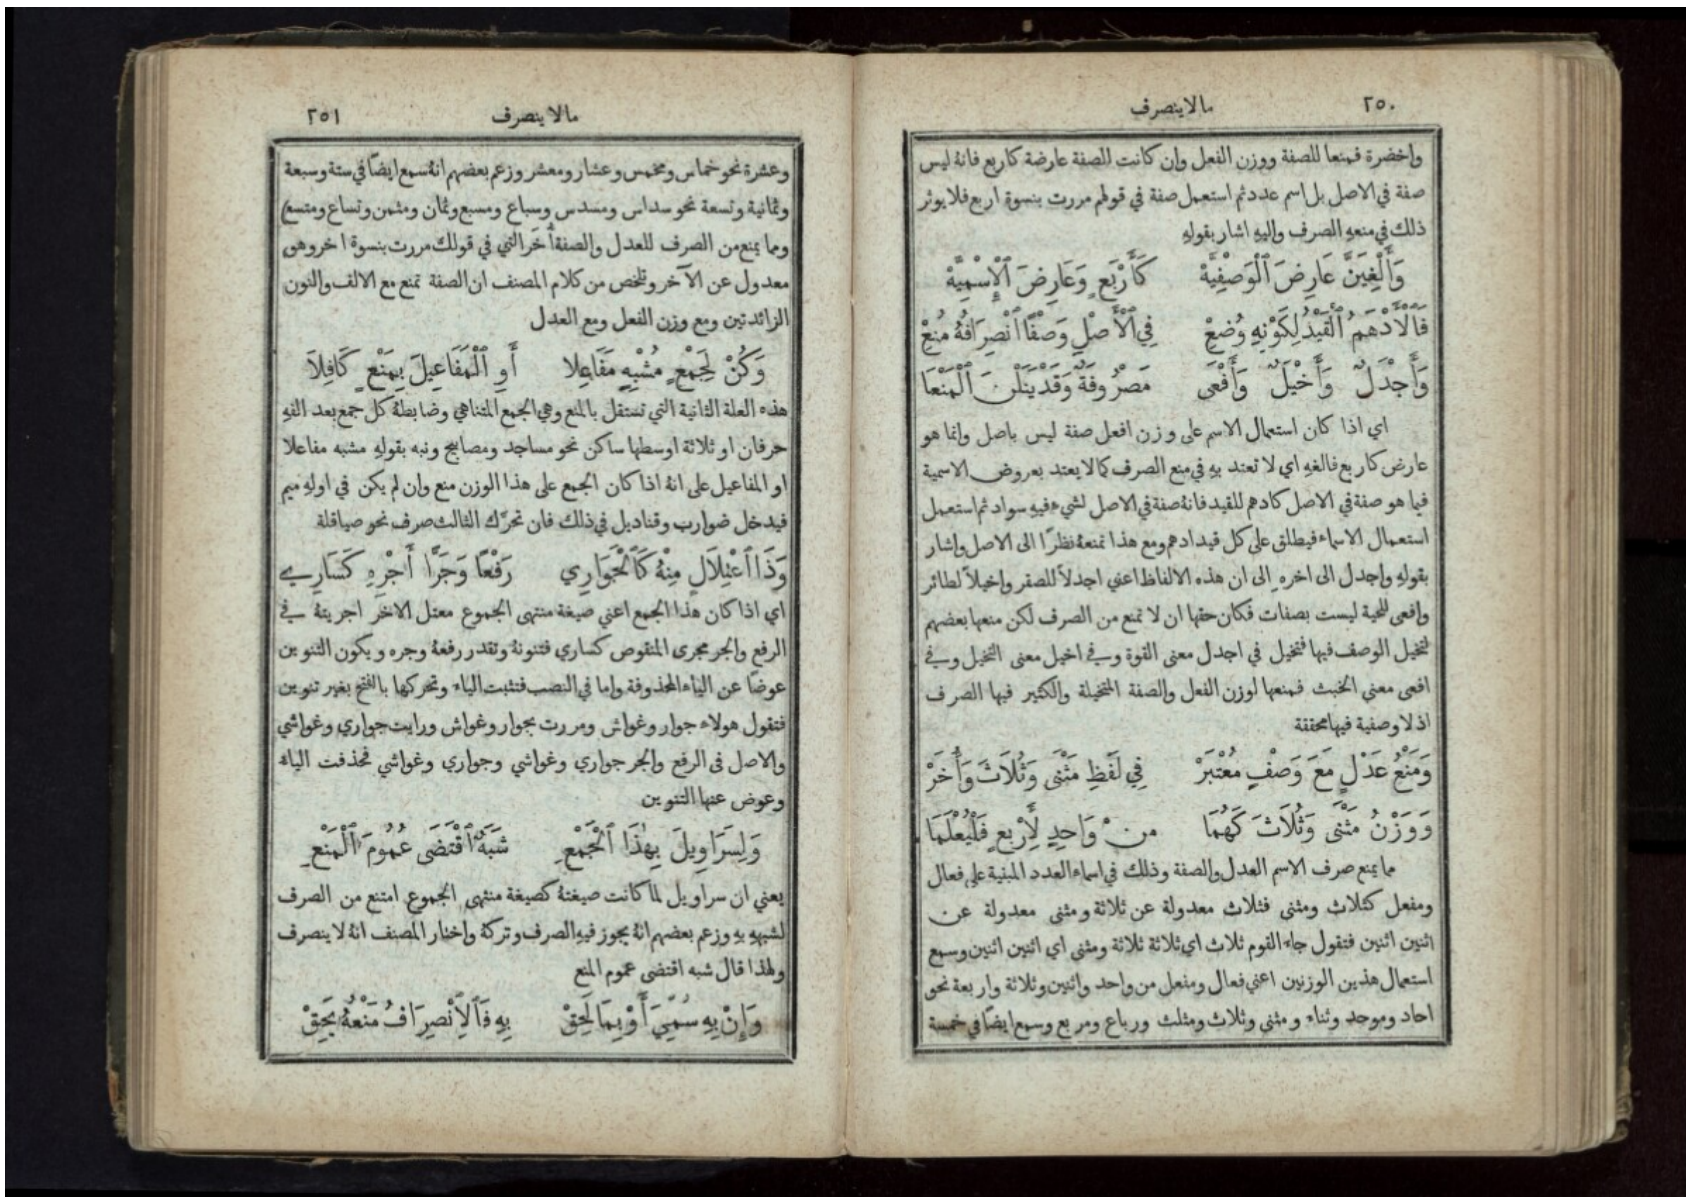 ٢٥٠ مالاينصرف
واخضرة فمنعا للصفة ووزن الفعل وان كانت للصفة عارضة كاربع فانهُ ليس
صفة في الاصل بل اسم عدد ثم استعمل صفة في قولهم مررت بنسوة اربع فلا يوثر
ذلك في منعهِ الصرف واليهِ اشار بقولهِ
وَأَلْغِيَنَّ عَارِضَ ٱلْوَصْفِيَّهْ كَأَرْبَعٍ وَعَارِضَ ٱلْإِسْمِيَّهْ
فَٱلْأَدْهَمُ ٱلْقَيْدُ لِكَوْنِهِ وُضِعْ فِي ٱلْأَصْلِ وَصْفًا ٱنْصِرَافُهُ مُنِعْ
وَأَجْدَلٌ وَأَخْيَلٌ وَأَفْعَى مَصْرُوفَةٌ وَقَدْ يَنَلْنَ ٱلْمَنْعَا
اي اذا كان استعمال الاسم على وزن افعل صفة ليس باصل وانما هو
عارض كاربع فالغهِ اي لا تعتد بهِ في منع الصرف كما لا يعتد بعروض الاسمية
فيما هو صفة في الاصل كادهم للقيد فانهُ صفة في الاصل لشيء فيهِ سواد ثم استعمل
استعمال الاسماء فيطلق على كل قيد ادهم ومع هذا تمنعهُ نظرًا الى الاصل واشار
بقولهِ واجدل الى اخرهِ الى ان هذه الالفاظ اعني اجدلاً للصقر واخيلاً لطائر
وافعى للحية ليست بصفات فكان حقها ان لا تمنع من الصرف لكن منعها بعضهم
لتخيل الوصف فيها فتخيل في اجدل معنى القوة وفي اخيل معنى التخيل وفي
افعى معنى الخبث فمنعها لوزن الفعل والصفة المتخيلة والكثير فيها الصرف
اذ لا وصفية فيها محققة
وَمَنْعُ عَدْلٍ مَعَ وَصْفٍ مُعْتَبَرْ فِي لَفْظِ مَثْنَى وَثُلَاثَ وَأُخَرْ
وَوَزْنُ مَثْنَى وَثُلَاثَ كَهُمَا مِنْ وَاحِدٍ لِأَرْبَعٍ فَلْيُعْلَمَا
مما يمنع صرف الاسم العدل والصفة وذلك في اسماء العدد المبنية على فعال
ومفعل كثلاث ومثنى فثلاث معدولة عن ثلاثة ومثنى معدولة عن
اثنين اثنين فتقول جاء القوم ثلاث اي ثلاثة ثلاثة ومثنى اي اثنين اثنين وسمع
استعمال هذين الوزنين اعني فعال ومفعل من واحد واثنين وثلاثة واربعة نحو
احاد وموحد وثناء ومثنى وثلاث ومثلث ورباع ومربع وسمع ايضًا في خمسة
مالاينصرف ٢٥١
وعشرة نحو خماس ومخمس وعشار ومعشر وزعم بعضهم انهُ سمع ايضًا في ستة وسبعة
وثمانية وتسعة نحو سداس ومسدس وسباع ومسبع وثمان ومثمن وتساع ومتسع
ومما يمنع من الصرف للعدل والصفة أُخَر التي في قولك مررت بنسوة اخر وهي
معدول عن الآخر وتلخص من كلام المصنف ان الصفة تمنع مع الالف والنون
الزائدتين ومع وزن الفعل ومع العدل
وَكُنْ لِجَمْعٍ مُشْبِهٍ مَفَاعِلا أَوِ ٱلْمَفَاعِيلَ بِمَنْعٍ كَافِلَا
هذه العلة الثانية التي تستقل بالمنع وهي الجمع المتناهي وضابطهُ كل جمع بعد الفهِ
حرفان او ثلاثة اوسطها ساكن نحو مساجد ومصابيح ونبه بقولهِ مشبه مفاعلا
او المفاعيل على انهُ اذا كان الجمع على هذا الوزن منع وان لم يكن في اولهِ ميم
فيدخل ضوارب وقناديل في ذلك فان تحرَّك الثالث صرف نحو صياقلة
وَذَا ٱعْتِلَالٍ مِنْهُ كَٱلْجَوَارِي رَفْعًا وَجَرًّا أَجْرِهِ كَسَارِي
اي اذا كان هذا الجمع اعني صيغة منتهى الجموع معتل الاخر اجريتهُ في
الرفع والجر مجرى المنقوص كساري فتنونهُ وتقدر رفعهُ وجره ويكون التنوين
عوضًا عن الياء المحذوفة واما في النصب فتثبت الياء وتحركها بالفتح بغير تنوين
فتقول هولاء جوار وغواش ومررت بجوار وغواش ورايت جواري وغواشي
والاصل في الرفع والجر جواري وغواشي وجواري وغواشي فحذفت الياء
وعوض عنها التنوين
وَلِسَرَاوِيلَ بِهٰذَا ٱلْجَمْعِ شَبَهٌ ٱقْتَضَى عُمُومَ ٱلْمَنْعِ
يعني ان سراويل لما كانت صيغتهُ كصيغة منتهى الجموع امتنع من الصرف
لشبههِ بهِ وزعم بعضهم انهُ يجوز فيهِ الصرف وتركهُ واختار المصنف انهُ لا ينصرف
ولهذا قال شبه اقتضى عموم المنع
وَإِنْ بِهِ سُمِّيَ أَوْ بِمَا لَحِقْ بِهِ فَٱلِٱنْصِرَافُ مَنْعُهُ يَحِقّْ